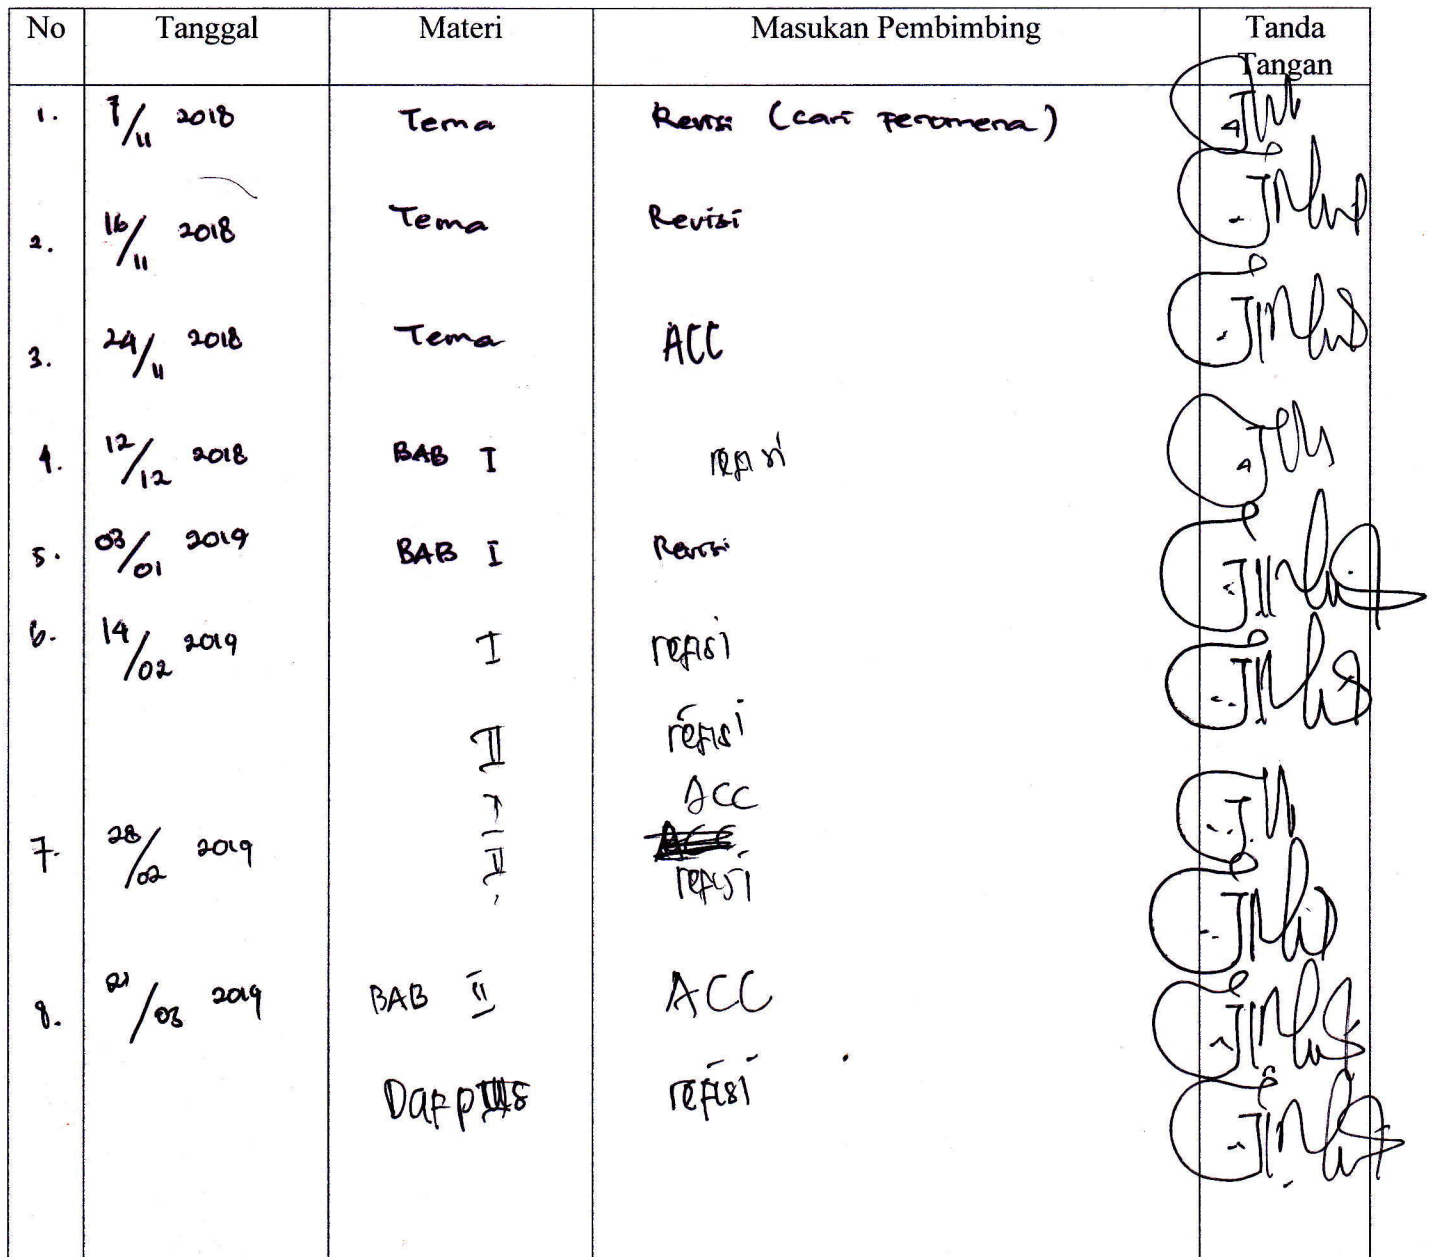 No Tanggal Materi Masukan Pembimbing Tanda Tangan
1. 7/11 2018 Tema Revisi (cari fenomena)
2. 16/11 2018 Tema Revisi
3. 24/11 2018 Tema ACC
4. 12/12 2018 BAB I refisi
5. 03/01 2019 BAB I Revisi
6. 14/02 2019 I refisi
II refisi
I ACC
7. 28/02 2019 II refisi
8. 21/03 2019 BAB II ACC
Dafpus refisi